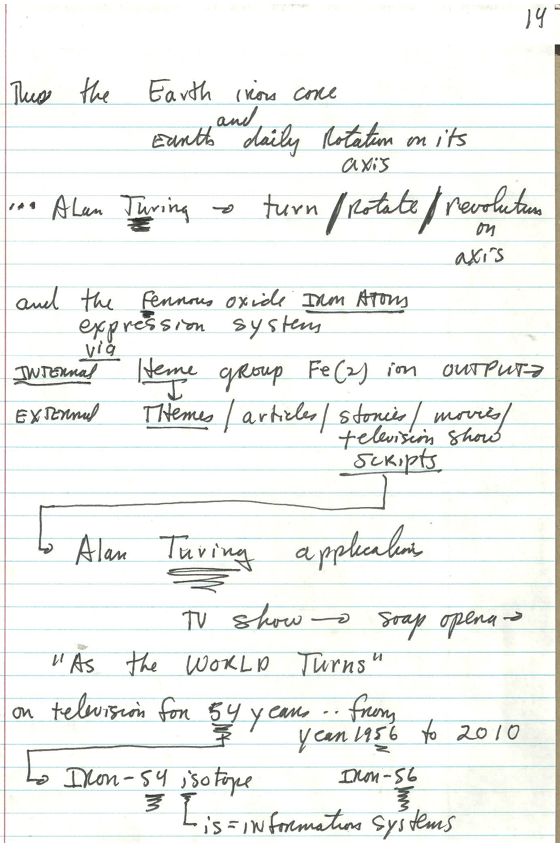 14
Thus the Earth iron core
and
Earth daily Rotation on its
axis
... Alan Turing → turn / Rotate / revolution
on
axis
and the Ferrous oxide Iron Atoms
expression system
via
INTERNAL Heme group Fe(2) ion OUTPUT→
EXTERNAL THemes / articles / stories / movies /
television show
SCRIPTS
Alan Turing applications
TV show → soap opera →
"As the WORLD Turns"
on television for 54 years .. from
year 1956 to 2010
Iron-54 isotope Iron-56
is = information systems